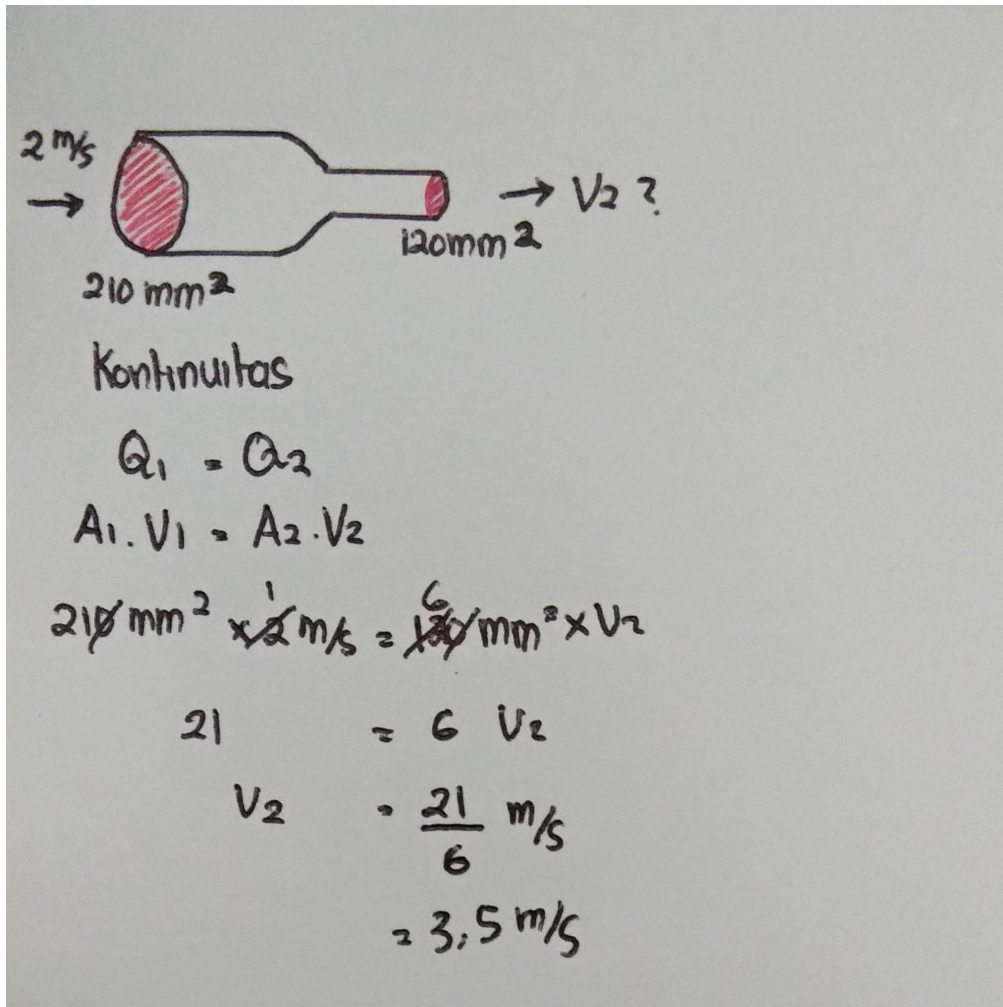 2 m/s
→ V2 ?
120mm2
210 mm2
Kontinuitas
Q1 = Q2
A1.V1 = A2.V2
210 mm2 x 2 1 m/s = 120 6 mm2 x V2
21 = 6 V2
V2 = 21/6 m/s
= 3,5 m/s